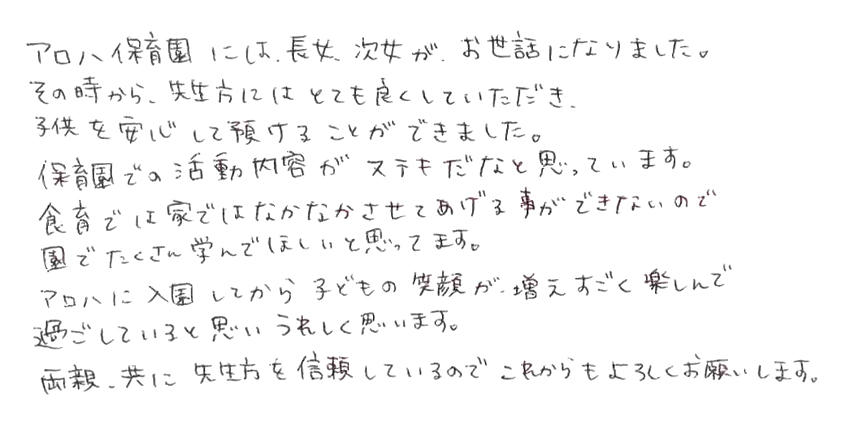 アロハ保育園には、長女、次女が、お世話になりました。
その時から、先生方にはとても良くしていただき、
子供を安心して預けることができました。
保育園での活動内容がステキだなと思っています。
食育では家ではなかなかさせてあげる事ができないので
園でたくさん学んでほしいと思ってます。
アロハに入園してから子どもの笑顔が、増えすごく楽しんで
過ごしていると思いうれしく思います。
両親、共に先生方を信頼しているのでこれからもよろしくお願いします。